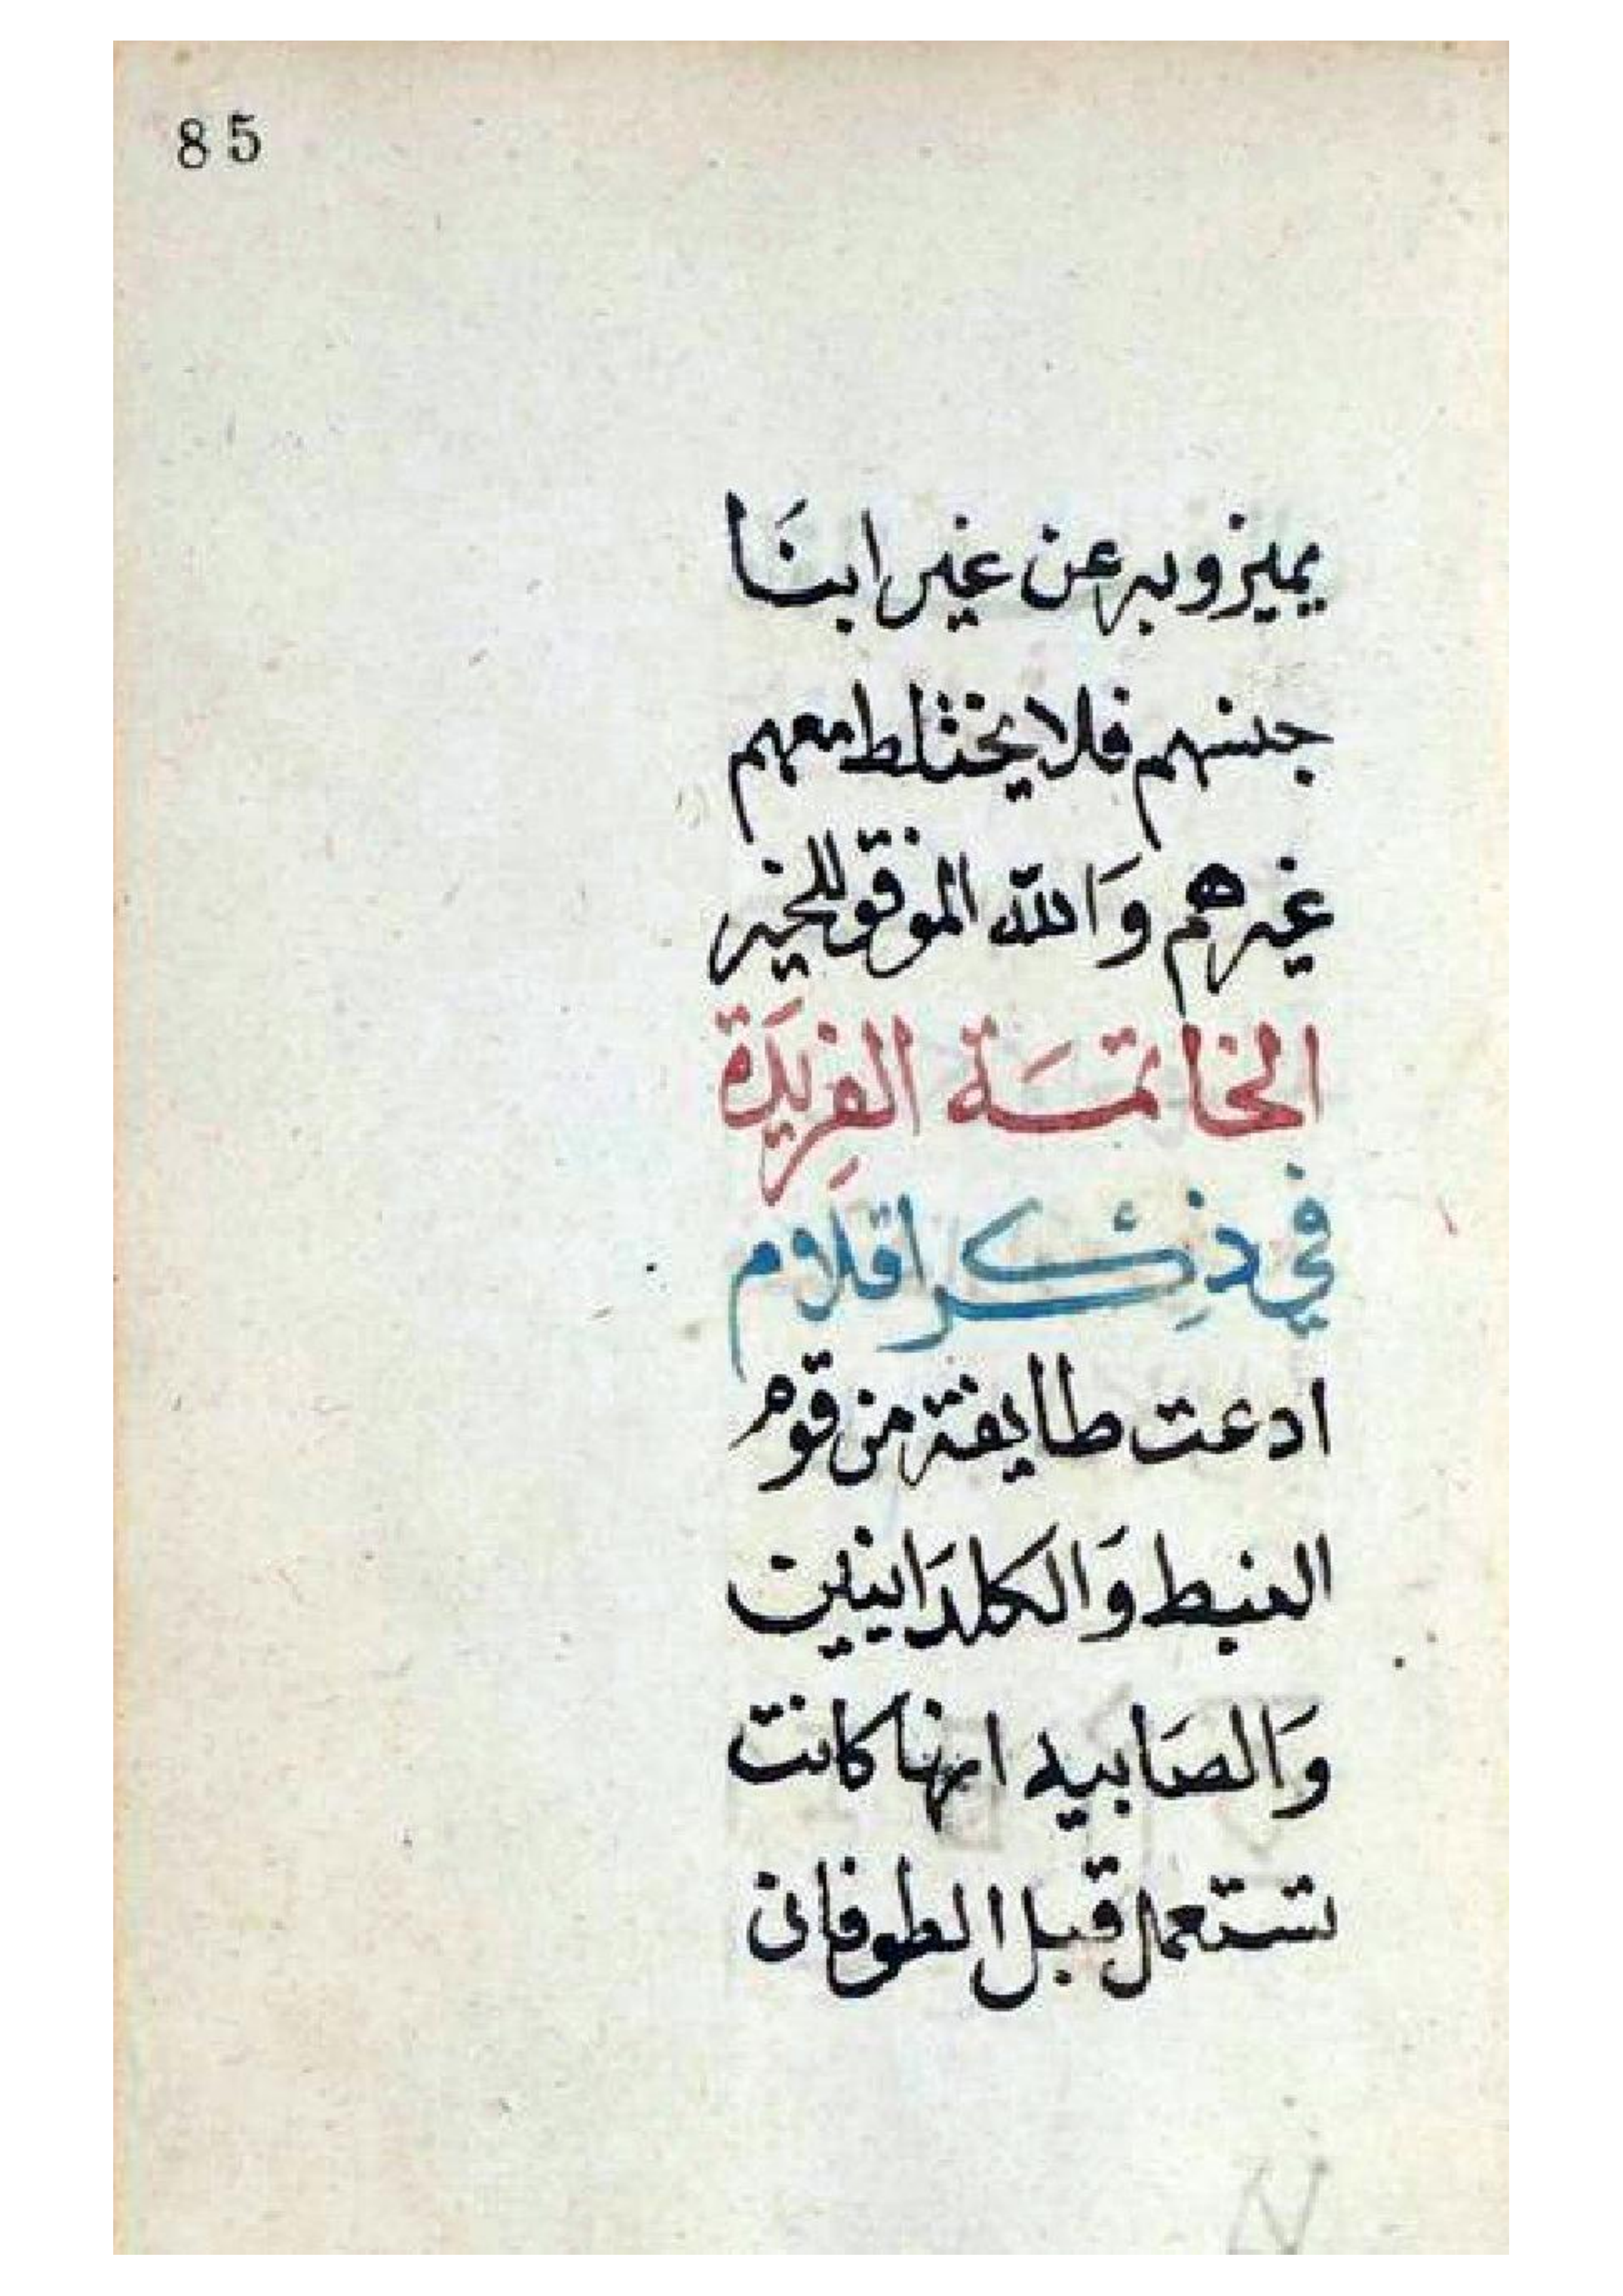 85
يميزو به عن غير ابنَا
جنسهم فلا يختلط معهم
غيرهم وَالله الموفق للخير
الخاتمَة الفرِيدَة
في ذِكر اقلام
ادعت طايفة من قوم
النبط وَالكلدَانيين
وَالصَابيه انها كانت
تستعمل قبل الطوفان